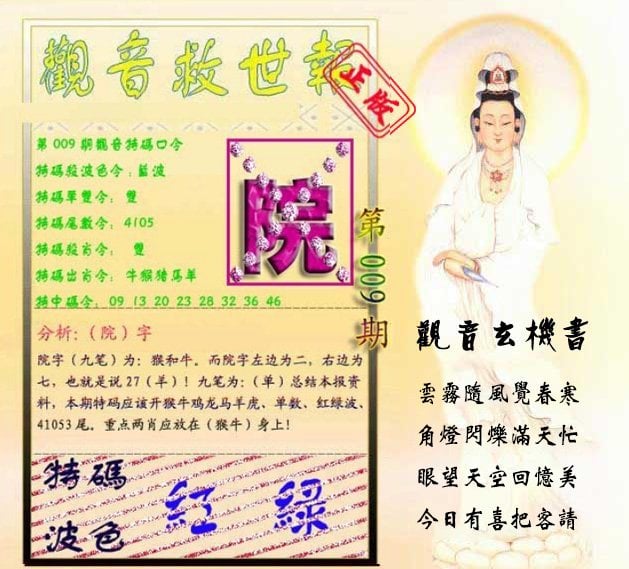 觀音救世報
正版
第009期觀音特碼口令
特碼殺波色令:藍波
特碼單雙令: 雙
特碼尾數令: 4105
特碼殺肖令: 雙
特碼出肖令: 牛猴豬馬羊
特中碼令: 09 13 20 23 28 32 36 46
院
第009期
分析:(院)字
院字(九笔)为:猴和牛。而院字左边为二,右边为
七,也就是说27(羊)!九笔为:(单)总结本报资
料,本期特码应该开猴牛鸡龙马羊虎、单数、红绿波、
41053尾。重点两肖应放在(猴牛)身上!
特碼
波色
紅 綠
觀音玄機書
雲霧隨風覺春寒
角燈閃爍滿天忙
眼望天空回憶美
今日有喜把客請